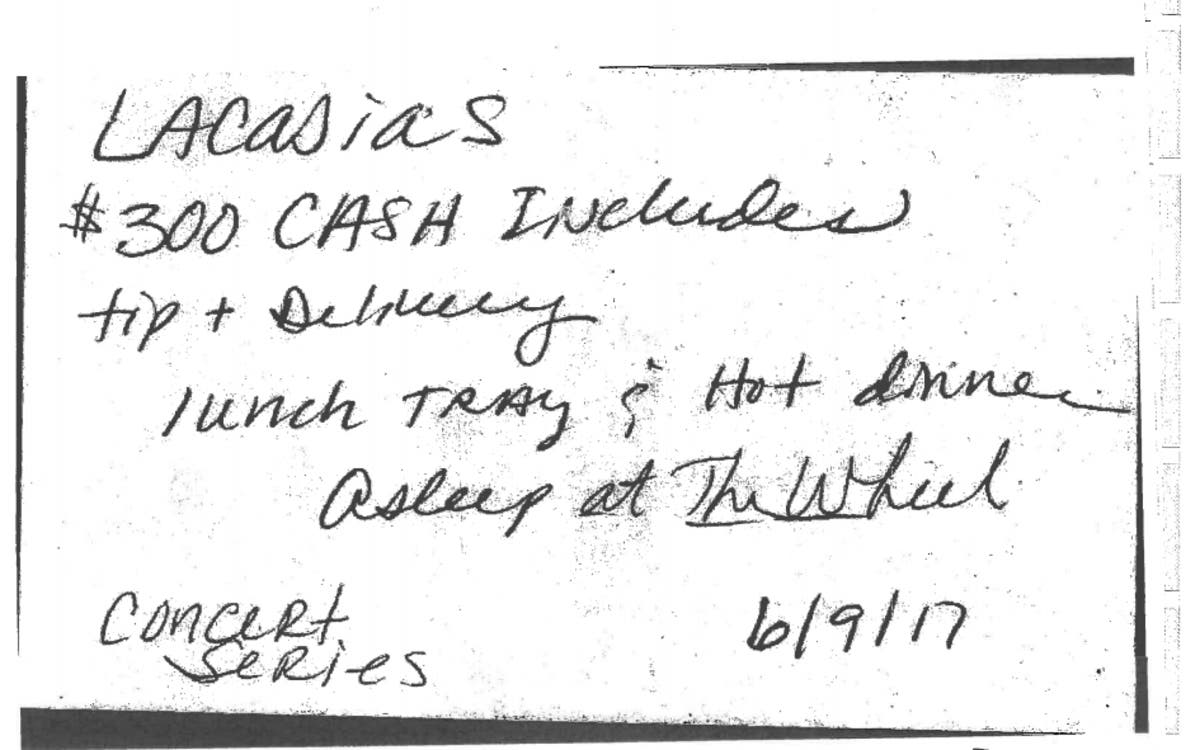 LACaDias
$300 CASH INcludes
tip + Delivery
lunch TRAy & Hot dinner
Asleep at The Wheel
Concert
Series
6/9/17